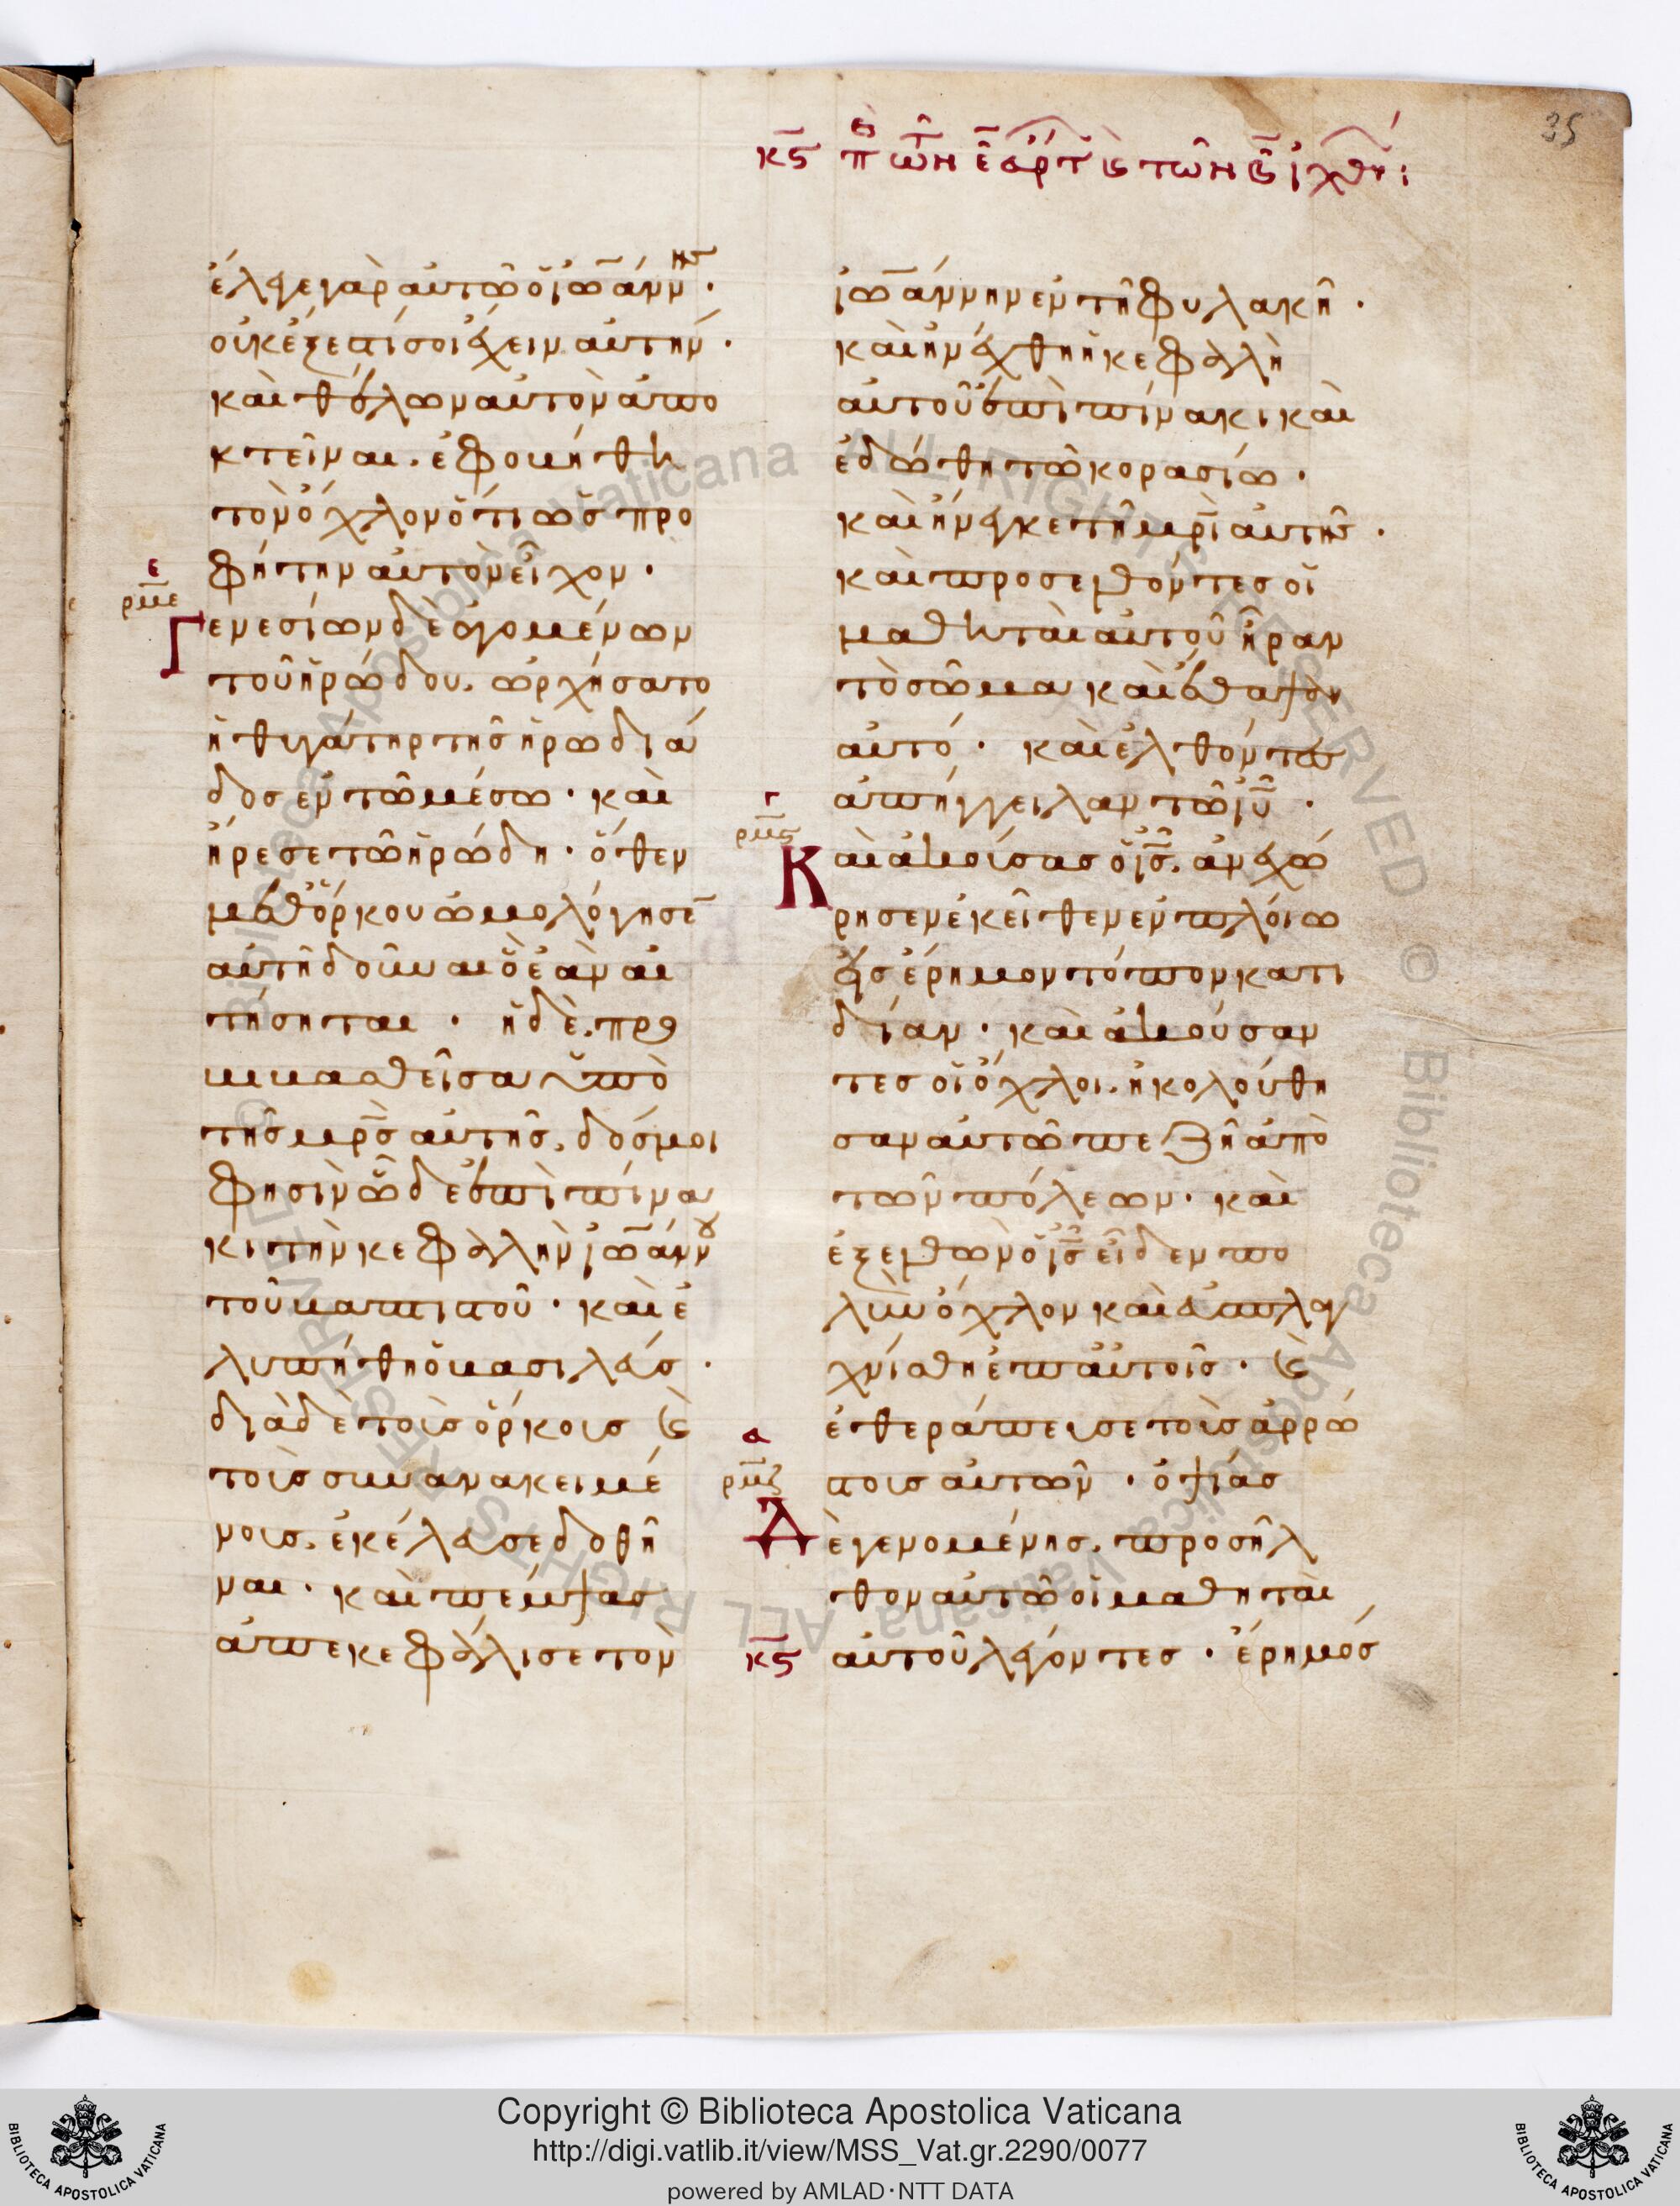 35
κϛ πε τῶν ε ἄρτ ϗ τῶν β ἰχθυ:
ἔλεγε γὰρ αὐτῶ ὁ ἰωάννης·
οὐκ ἔξεστί σοι ἔχειν αὐτήν·
καὶ θέλων αὐτὸν ἀπο
κτεῖναι. ἐφοβήθη
τὸν ὄχλον ὅτι ὡς προ
φήτην αὐτὸν εἶχον·
ε
ρμε
Γενεσίων δὲ ἀγομένων
τοῦ ἡρώδου. ὠρχήσατο
ἡ θυγάτηρ τῆς ἡρωδιά
δος ἐν τῶ μέσω· καὶ
ἤρεσε τῶ ἡρώδη· ὅθεν
μεθ ὅρκου ὡμολόγησε̄
αὐτῆ δοῦναι ὃ ἐὰν αἰ
τήσηται· ἡ δὲ. προ
βιβασθεῖσα ὑπὸ
τῆς μρ̅ς αὐτῆς. δός μοι
φησὶν ὧδε ἐπὶ πίνα
κι τὴν κεφαλὴν ἰωάννου
τοῦ βαπτιστοῦ· καὶ ἐ
λυπήθη ὁ βασιλεύς·
διὰ δὲ τοὺς ὅρκους ϗ
τοὺς συνανακειμέ
νους. ἐκέλευσε δοθῆ
ναι· καὶ πέμψας
ἀπεκεφάλισε τὸν
ἰωάννην ἐν τῆ φυλακῆ·
καὶ ἠνέχθη ἡ κεφαλὴ
αὐτοῦ ἐπὶ πίνακι καὶ
ἐδόθη τῶ κορασίω·
καὶ ἤνεγκε τῆ μρ̅ὶ αὐτῆς·
καὶ προσελθόντες οἱ
μαθηταὶ αὐτοῦ ἦραν
τὸ σῶμα καὶ ἔθαψαν
αὐτό· καὶ ἐλθόντες
ἀπήγγειλαν τῶ ἰ̅υ̅·
γ
ρμϛ
Καὶ ἀκούσας ὁ ἰ̅ς̅. ἀνεχώ
ρησεν ἐκεῖθεν ἐν πλοίω
εἰς ἔρημον τόπον κατι
δίαν· καὶ ἀκούσαν
τες οἱ ὄχλοι. ἠκολούθη
σαν αὐτῶ πεζῆ ἀπὸ
τῶν πόλεων· καὶ
ἐξελθὼν ὁ ἰ̅ς̅ εἶδεν πο
λὺν ὄχλον καὶ ἐσπλαγ
χνίσθη ἐπ αὐτοῖς· ϗ
ἐθεράπευσε τοὺς ἀρρώ
α
ρμζ
στους αὐτῶν· ὀψίας
Δὲ γενομένης. προσῆλ
θον αὐτῶ οἱ μαθηταὶ
κϛ
αὐτοῦ λέγοντες· ἔρημός
Copyright © Biblioteca Apostolica Vaticana
http://digi.vatlib.it/view/MSS_Vat.gr.2290/0077
powered by AMLAD·NTT DATA
BIBLIOTECA APOSTOLICA VATICANA
BIBLIOTECA APOSTOLICA VATICANA